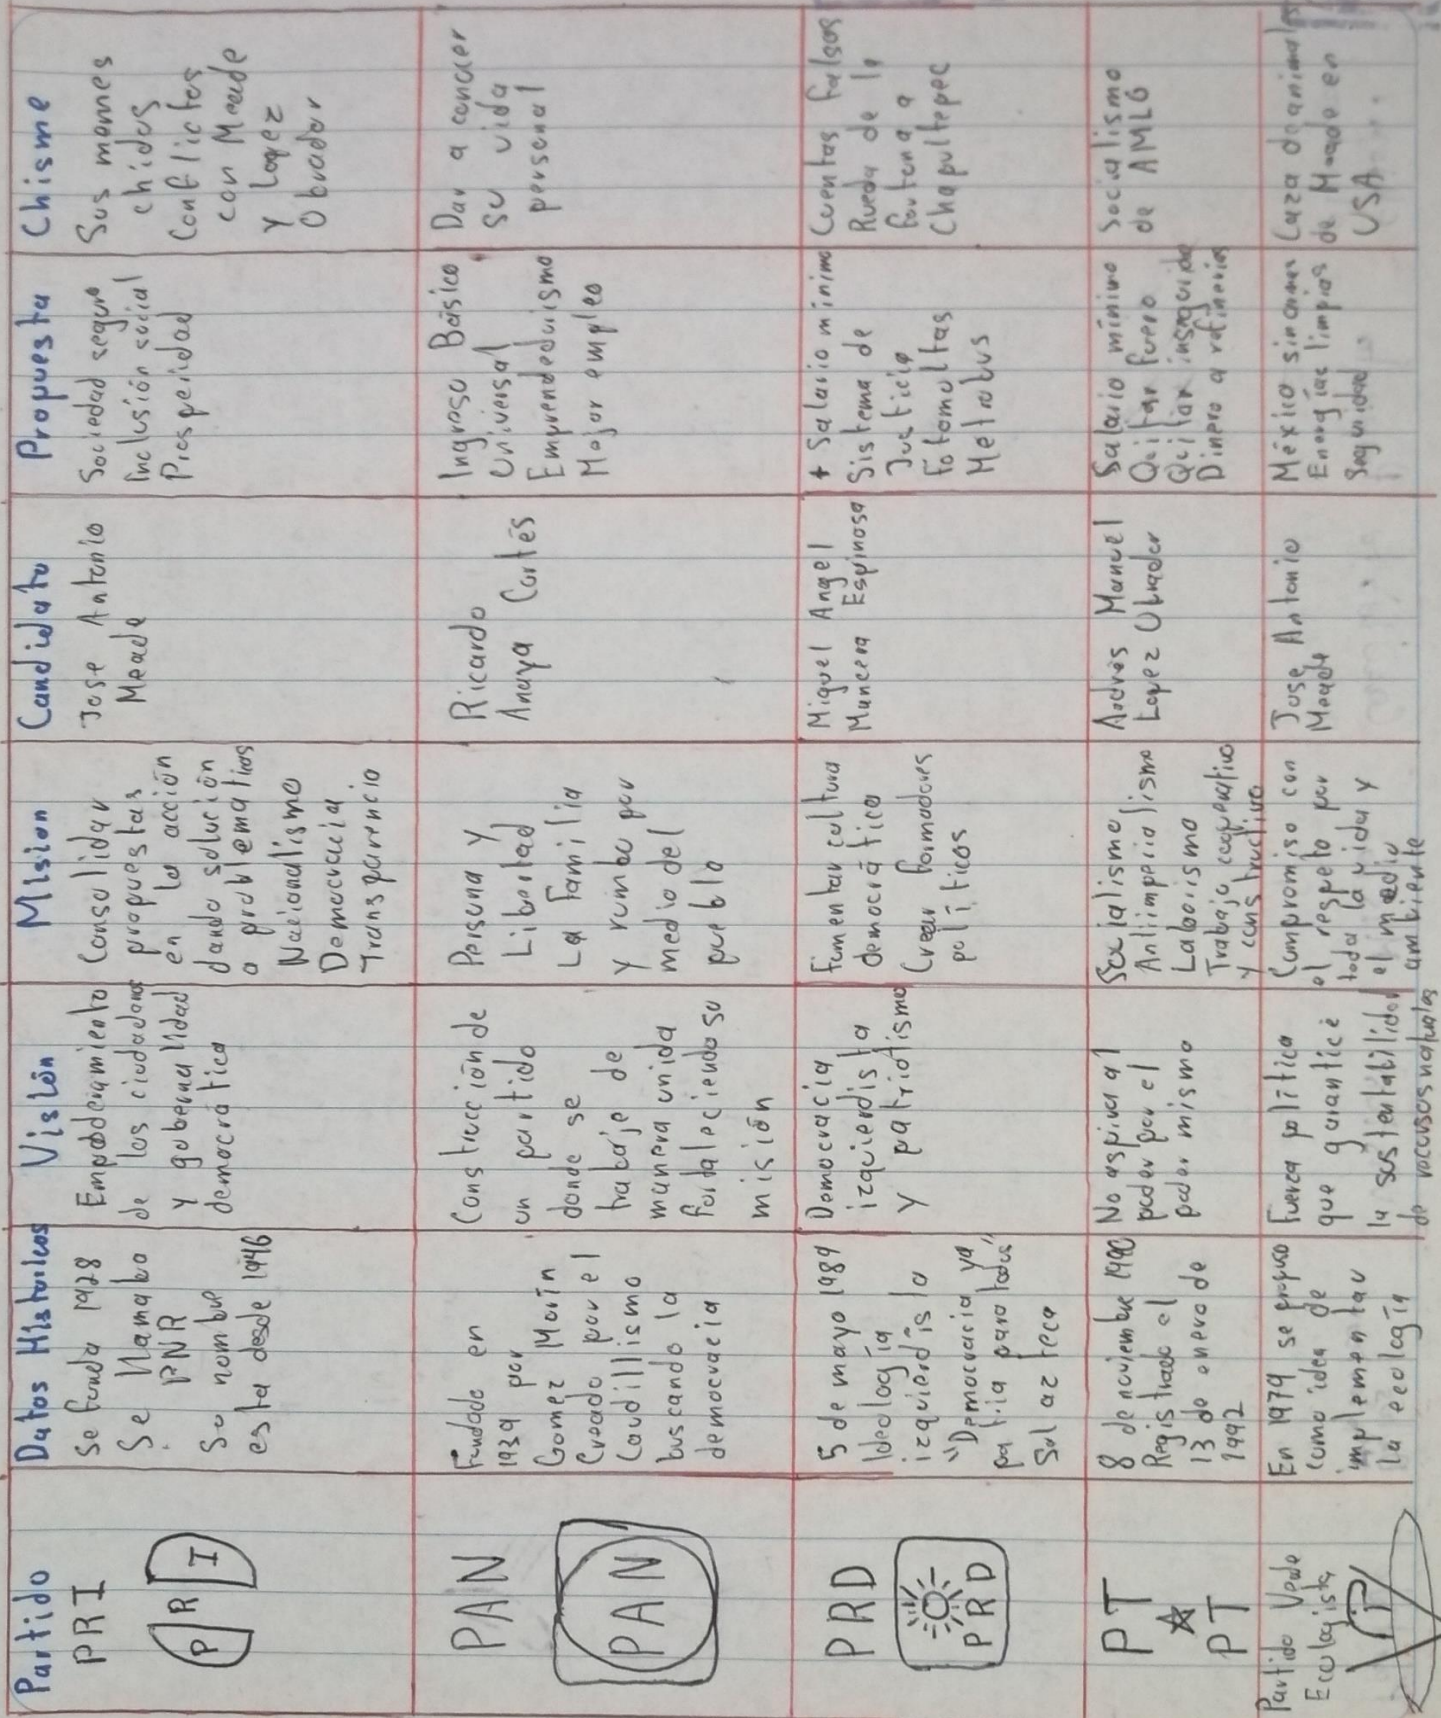 Partido
Datos Historicos
Visión
Mision
Candidato
Propuesta
Chisme
PRI
P R I
Se funda 1928
Se llamaba
PNR
Su nombre
esta desde 1946
Empoderamiento
de los ciudadanos
y gobernalidad
democrática
Consolidar
propuestas
en la acción
dando solución
a problematicas
Nacionalismo
Democracia
Transparencia
Jose Antonio
Meade
Sociedad segura
Inclusión social
Prosperidad
Sus memes
chidos
Conflictos
con Meade
y Lopez
Obrador
PAN
PAN
Fundado en
1939 por
Gomez Morín
Creado por el
Caudillismo
buscando la
democracia
Construcción de
un partido
donde se
trabaje de
manera unida
fortaleciendo su
misión
Persona y
Libertad
La Familia
y rumbo por
medio del
pueblo
Ricardo
Anaya Cortés
Ingreso Básico
Universal
Emprendeduismo
Mejor empleo
Dar a conocer
su vida
personal
PRD
PRD
5 de mayo 1989
Ideología
izquierdista
"Democracia ya
patria para todos"
Sol azteca
Democracia
izquierdista
y patriotismo
Fomentar cultura
democrática
Crear formadores
políticos
Miguel Angel
Mancera Espinosa
+ Salario minimo
Sistema de
Justicia
Fotomultas
Metrobus
Cuentas falsas
Rueda de la
fortuna a
Chapultepec
PT
PT
8 de noviembre 1990
Registrado el
13 de enero de
1992
No aspira al
poder por el
poder mismo
Socialismo
Antimperialismo
Laborismo
Trabajo cooperativo
y constructivo
Andrés Manuel
Lopez Obrador
Salario mínimo
Quitar fuero
Quitar inseguridad
Dinero a refinerias
Socialismo
de AMLO
Partido Verde
Ecologista
En 1979 se propuso
como idea de
implementar
la ecología
Fuerza política
que garantice
la sustentabilidad
de recursos naturales
Compromiso con
el respeto por
toda la vida y
el medio
ambiente
Jose Antonio
Meade
México sin
Energías limpias
Seguridad
Caza de animales
de Meade en
USA